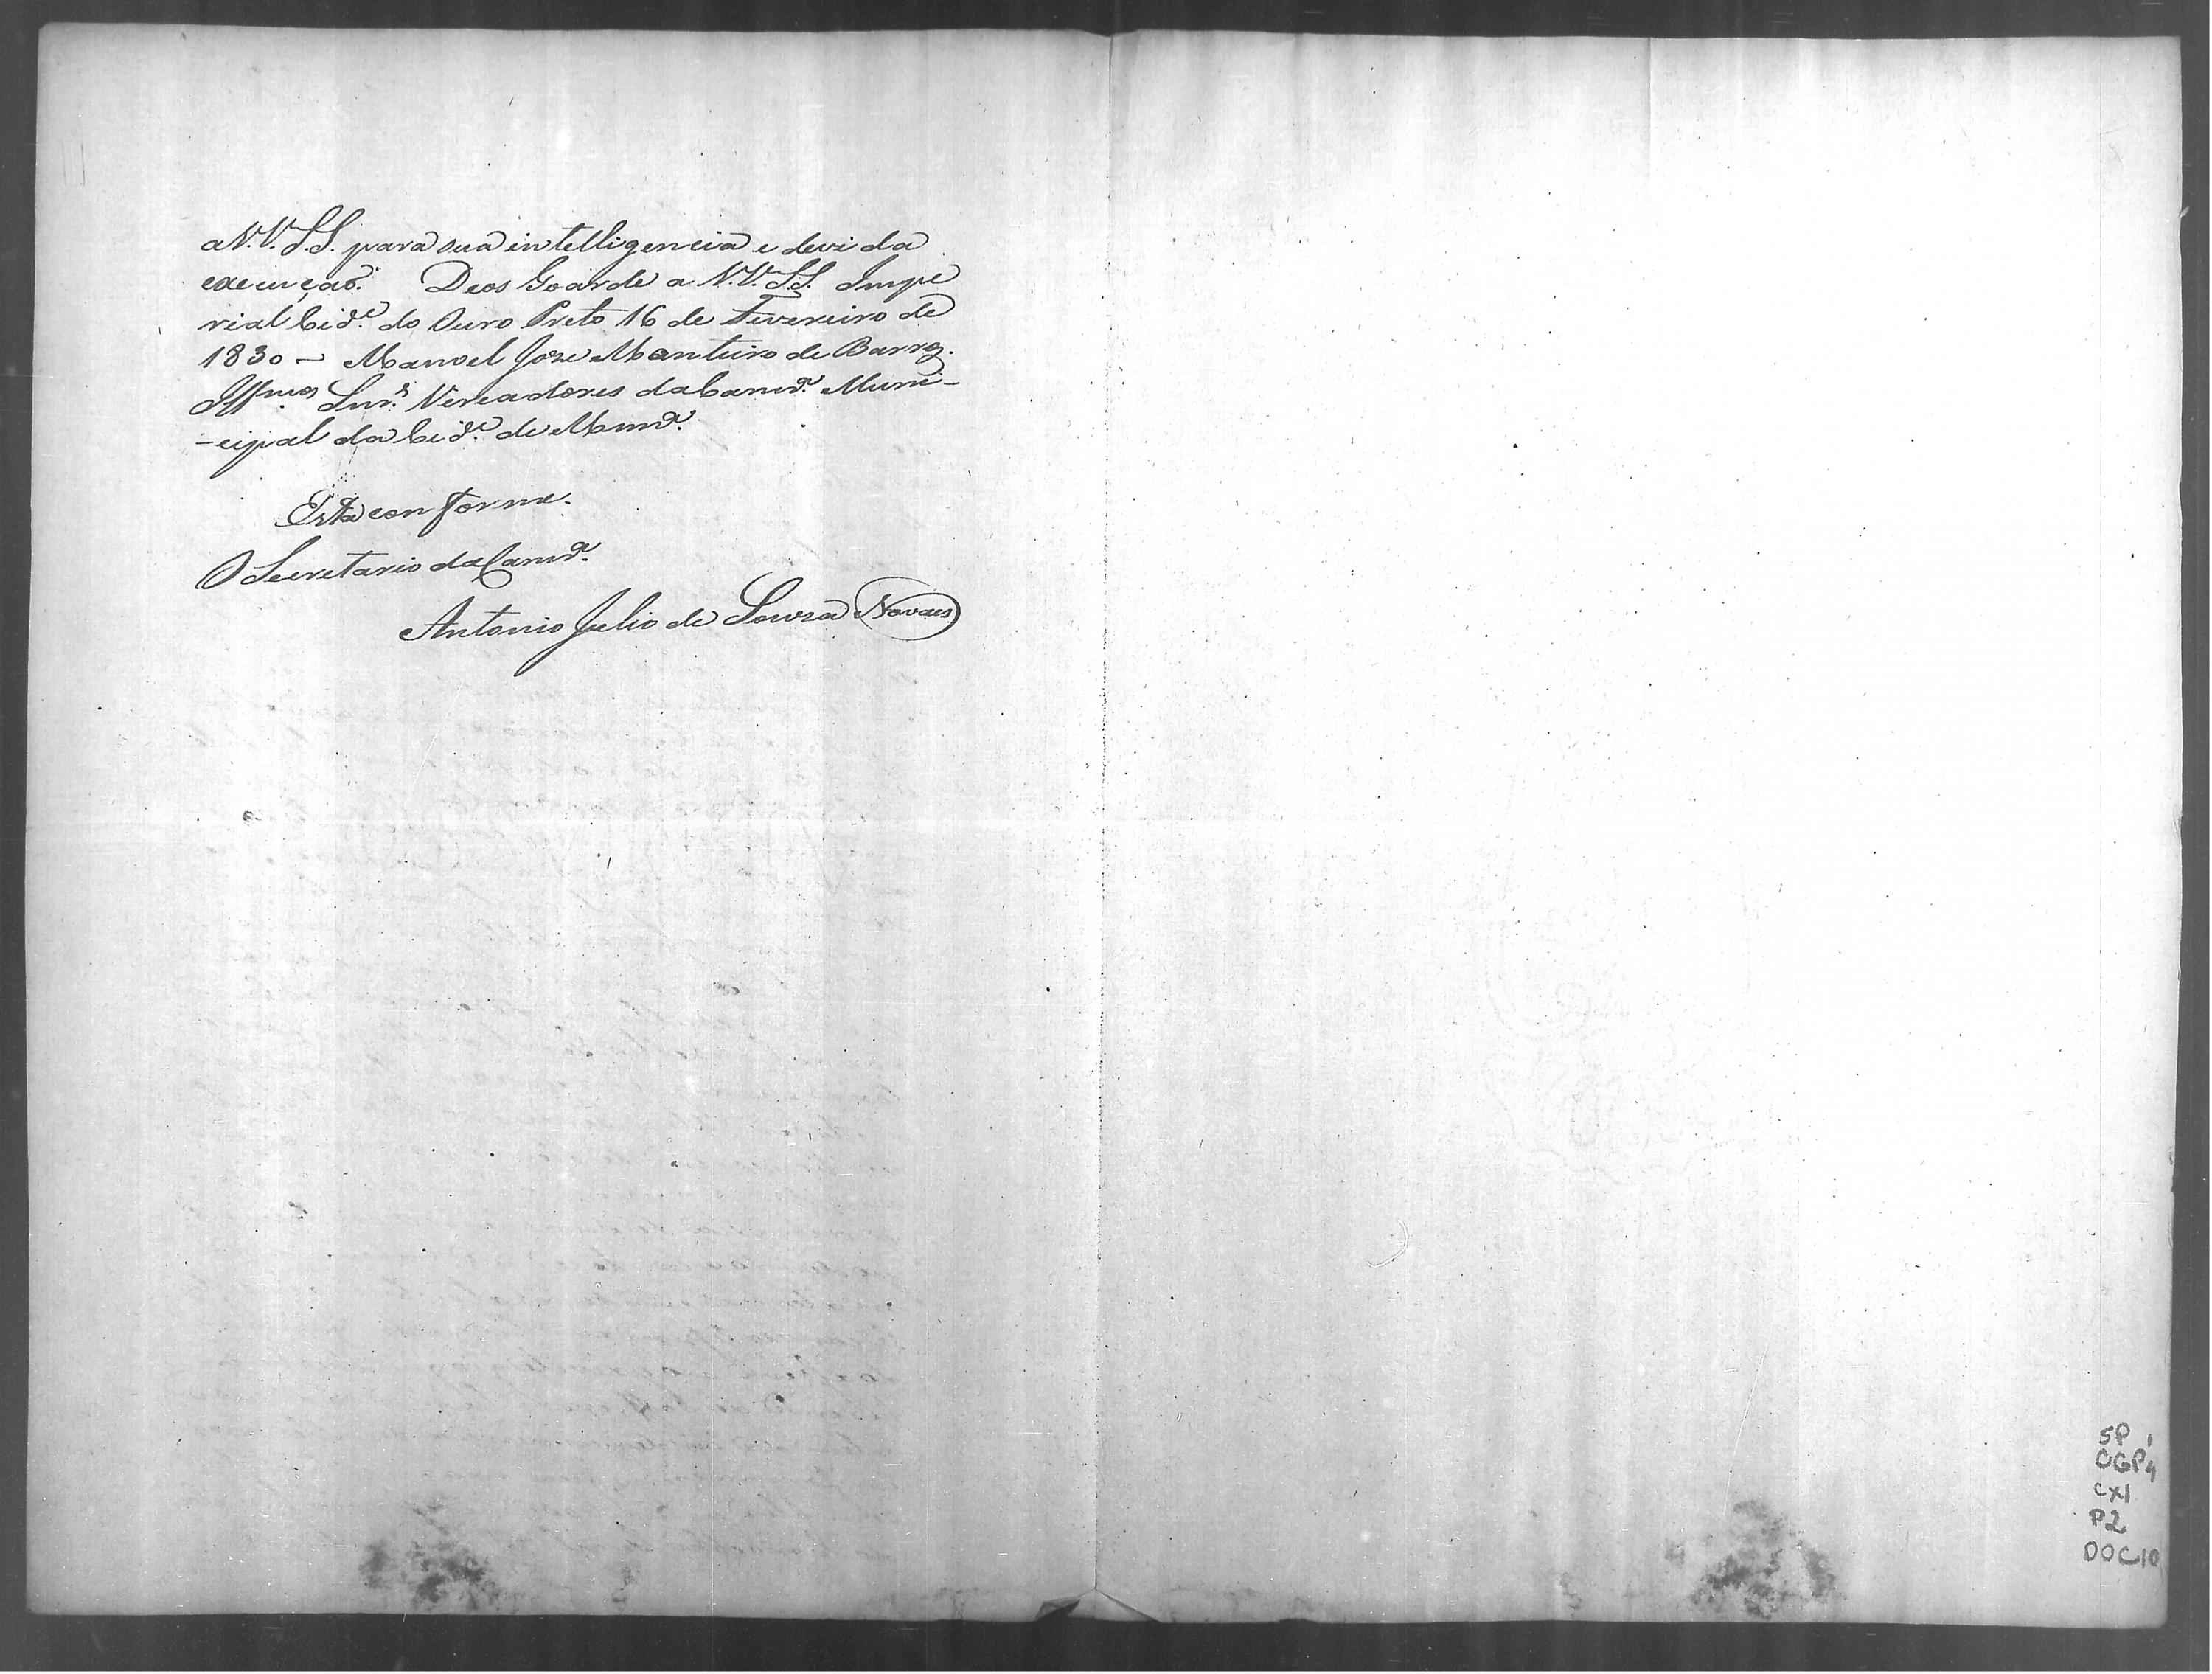 a V.V. S.S. para sua intelligencia e devida
execução. Deos Goarde a V.V. S.S. Impe
rial Cid.e do Ouro Preto 16 de Fevereiro de
1830 - Manoel Jose Monteiro de Barros.
Illmos Snr.s Vereadores da Camr.a Muni-
-cipal da Cid.e de Marn.a
Está conforme.
O Secretario da Camr.a
Antonio Julio de Souza Novaes
SP 1
CGP4
CX1
P2
DOC10